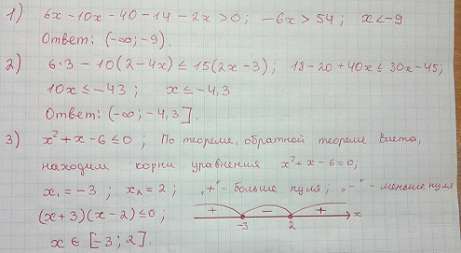 1) 6x - 10x - 40 - 14 - 2x > 0; -6x > 54; x < -9
Ответ: (-∞; -9).
2) 6·3 - 10(2-4x) ≤ 15(2x-3); 18-20+40x ≤ 30x-45;
10x ≤ -43; x ≤ -4,3
Ответ: (-∞; -4,3].
3) x² + x - 6 ≤ 0; По теореме, обратной теореме Виета,
находим корни уравнения x² + x - 6 = 0;
x₁ = -3; x₂ = 2; „+" - больше нуля; „-" - меньше нуля
(x+3)(x-2) ≤ 0; + - + x
-3 2
x ∈ [-3; 2].